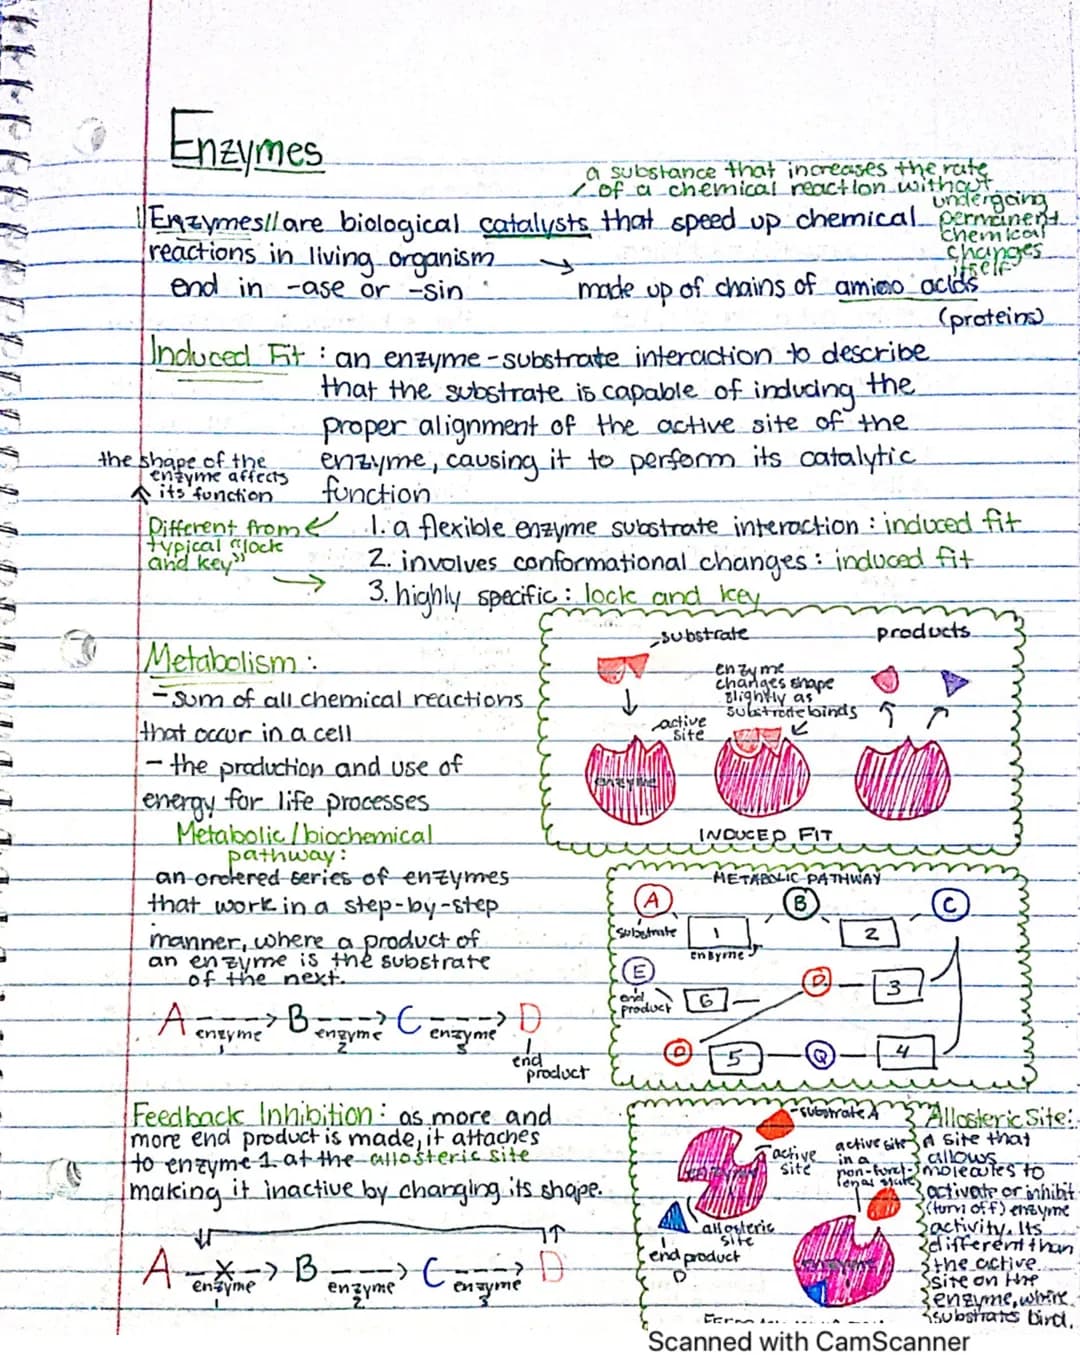 Enzymes
a substance that increases the rate
of a chemical reaction without
undergoing
permanent
chemical
changes
itself
Enzymes// are biological catalysts that speed up chemical
reactions in living organism
end in -ase or -sin
made up of chains of amino acids
(proteins)
Induced Fit : an enzyme-substrate interaction to describe
that the substrate is capable of inducing the
proper alignment of the active site of the
enzyme, causing it to perform its catalytic
function
the shape of the
enzyme affects
its function
Different from
typical "lock
and key"
1. a flexible enzyme substrate interaction : induced fit
2. involves conformational changes : induced fit
3. highly specific : lock and key
Metabolism :
- sum of all chemical reactions
that occur in a cell
- the production and use of
energy for life processes
substrate
products
enzyme
changes shape
slightly as
substrate binds
active
site
enzyme
INDUCED FIT
Metabolic/biochemical
pathway:
an ordered series of enzymes
that work in a step-by-step
manner, where a product of
an enzyme is the substrate
of the next.
A ----> B ----> C ----> D
enzyme enzyme enzyme
1 2 3
end
product
METABOLIC PATHWAY
A B C
substrate 1 2
enzyme
E D 3
end
product 6
D 5 Q 4
Feedback Inhibition : as more and
more end product is made, it attaches
to enzyme 1. at the allosteric site
making it inactive by changing its shape.
A -X-> B ----> C ---> D
enzyme enzyme enzyme
1 2 3
substrate A
active
site
enzyme
allosteric
site
end product
D
active site
in a
non-funct-
ional state
enzyme
Allosteric Site:
A site that
allows
molecules to
activate or inhibit
(turn off) enzyme
activity. Its
different than
the active
site on the
enzyme, where
substrates bind.
Scanned with CamScanner